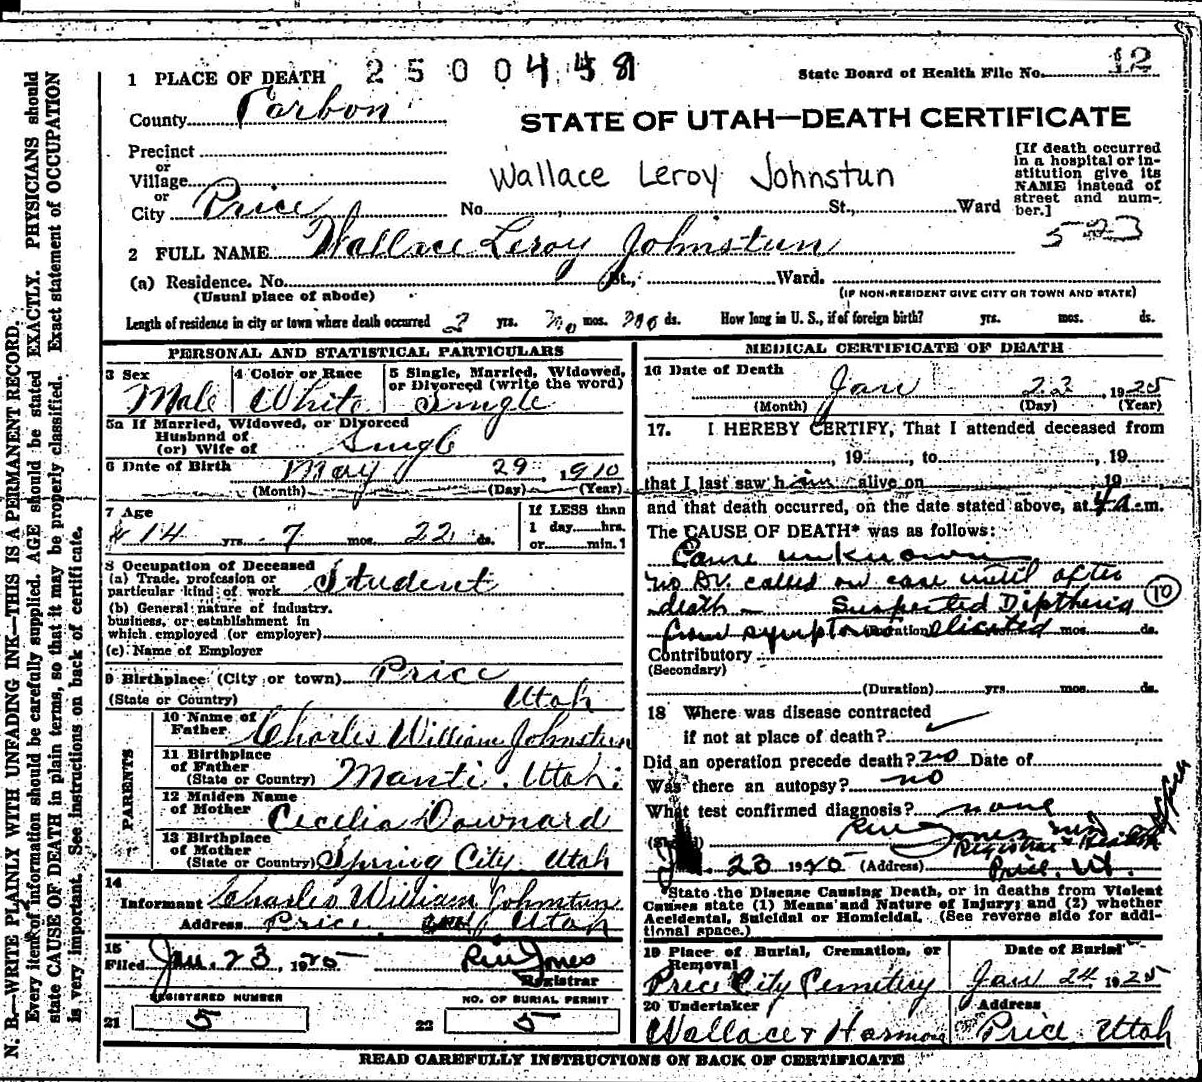 1 PLACE OF DEATH 2500448
State Board of Health File No. 12
County Carbon
STATE OF UTAH—DEATH CERTIFICATE
Precinct
or
Village
or
City Price
Wallace Leroy Johnstun
No. , St., Ward
[If death occurred
in a hospital or in-
stitution give its
NAME instead of
street and num-
ber.]
523
2 FULL NAME Wallace Leroy Johnstun
(a) Residence. No. St., Ward.
(Usual place of abode)
(IF NON-RESIDENT GIVE CITY OR TOWN AND STATE)
Length of residence in city or town where death occurred yrs. mos. ds. How long in U. S., if of foreign birth? yrs. mos. ds.
PERSONAL AND STATISTICAL PARTICULARS
3 Sex Male
4 Color or Race White
5 Single, Married, Widowed,
or Divorced (write the word)
Single
5a If Married, Widowed, or Divorced
Husband of
(or) Wife of Single
6 Date of Birth May 29, 1910
(Month) (Day) (Year)
7 Age
14 yrs. 7 mos. 22 ds.
If LESS than
1 day hrs.
or min.?
8 Occupation of Deceased
(a) Trade, profession or
particular kind of work Student
(b) General nature of industry.
business, or establishment in
which employed (or employer)
(c) Name of Employer
9 Birthplace (City or town) Price
(State or Country) Utah
PARENTS
10 Name of
Father Charles William Johnstun
11 Birthplace
of Father
(State or Country) Manti. Utah.
12 Maiden Name
of Mother Cecelia Downard
13 Birthplace
of Mother
(State or Country) Spring City Utah
14
Informant Charles William Johnstun
Address Price Utah
15
Filed Jan. 23, 1925
Registrar
REGISTERED NUMBER
21 5
NO. OF BURIAL PERMIT
22 5
MEDICAL CERTIFICATE OF DEATH
16 Date of Death
Jan 22, 1925
(Month) (Day) (Year)
17. I HEREBY CERTIFY, That I attended deceased from
, 19 , to , 19
that I last saw him alive on 19
and that death occurred, on the date stated above, at 4 a.m.
The CAUSE OF DEATH* was as follows:
Cause unknown
no Dr. called on case until after
death — Suspected Diptheria 10
from symptoms elicited
(Duration) mos. ds.
Contributory
(Secondary)
(Duration) yrs. mos. ds.
18 Where was disease contracted
if not at place of death?
Did an operation precede death? no Date of
Was there an autopsy? no
What test confirmed diagnosis? none
Jones md
Registrar Health
23 1925 (Address) Price. Ut.
*State the Disease Causing Death, or in deaths from Violent
Causes state (1) Means and Nature of Injury; and (2) whether
Accidental, Suicidal or Homicidal. (See reverse side for addi-
tional space.)
19 Place of Burial, Cremation, or
Removal
Price City Cemetery
Date of Burial
Jan 24 1925
20 Undertaker
Wallace & Harmon
Address
Price Utah
READ CAREFULLY INSTRUCTIONS ON BACK OF CERTIFICATE
N. B.—WRITE PLAINLY WITH UNFADING INK—THIS IS A PERMANENT RECORD.
Every item of information should be carefully supplied. AGE should be stated EXACTLY. PHYSICIANS should
state CAUSE OF DEATH in plain terms, so that it may be properly classified. Exact statement of OCCUPATION
is very important. See instructions on back of certificate.